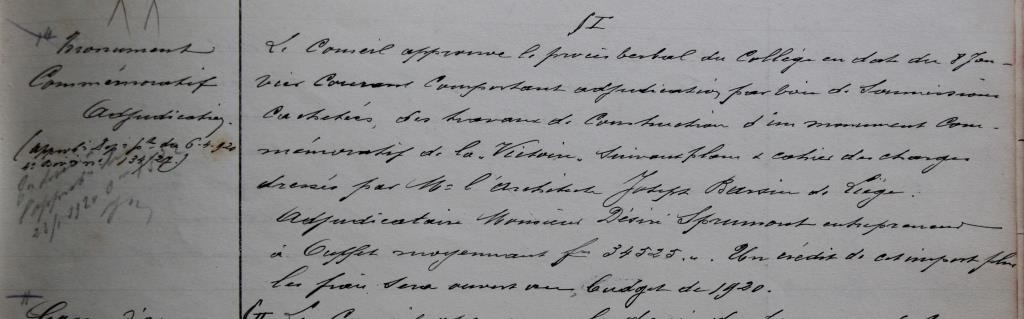 § I
Monument
Commémoratif
Adjudication.
Le Conseil approuve le procès verbal du Collège en date du 8 Jan-
vier courant comportant adjudication, par voie de Soumissions
cachetées, des travaux de Construction d'un monument Com-
mémoratif de la "Victoire", suivant plans & cahier des charges
dressés par Mr l'Architecte Joseph Bassin de Liège.
Adjudicataire Monsieur Désiré Sprumont entrepreneur
à Ouffet moyennant fr 34525 ". Un crédit de cet import plus
les frais sera ouvert au budget de 1920.
§ II